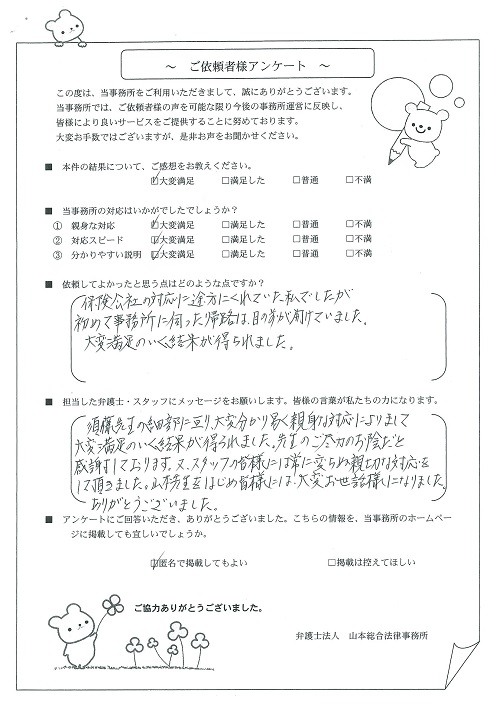 ～ ご依頼者様アンケート ～
この度は、当事務所をご利用いただきまして、誠にありがとうございます。
当事務所では、ご依頼者様の声を可能な限り今後の事務所運営に反映し、
皆様により良いサービスをご提供することに努めております。
大変お手数ではございますが、是非お声をお聞かせください。
■ 本件の結果について、ご感想をお教えください。
☑大変満足 □満足した □普通 □不満
■ 当事務所の対応はいかがでしたでしょうか？
① 親身な対応 ☑大変満足 □満足した □普通 □不満
② 対応スピード ☑大変満足 □満足した □普通 □不満
③ 分かりやすい説明 ☑大変満足 □満足した □普通 □不満
■ 依頼してよかったと思う点はどのような点ですか？
保険会社の対応に途方にくれていた私でしたが
初めて事務所に伺った帰路は、目の前が開けていました。
大変満足のいく結果が得られました。
■ 担当した弁護士・スタッフにメッセージをお願いします。皆様の言葉が私たちの力になります。
須藤先生の細部に亘り、大変分かり易く親身な対応によりまして
大変満足のいく結果が得られました。先生のご尽力のお陰だと
感謝しております。又、スタッフの皆様には常に変らぬ親切な対応を
して頂きました。山本先生をはじめ皆様には、大変お世話様になりました。
ありがとうございました。
■ アンケートにご回答いただき、ありがとうございました。こちらの情報を、当事務所のホームペー
ジに掲載しても宜しいでしょうか。
☑匿名で掲載してもよい □掲載は控えてほしい
ご協力ありがとうございました。
弁護士法人 山本総合法律事務所